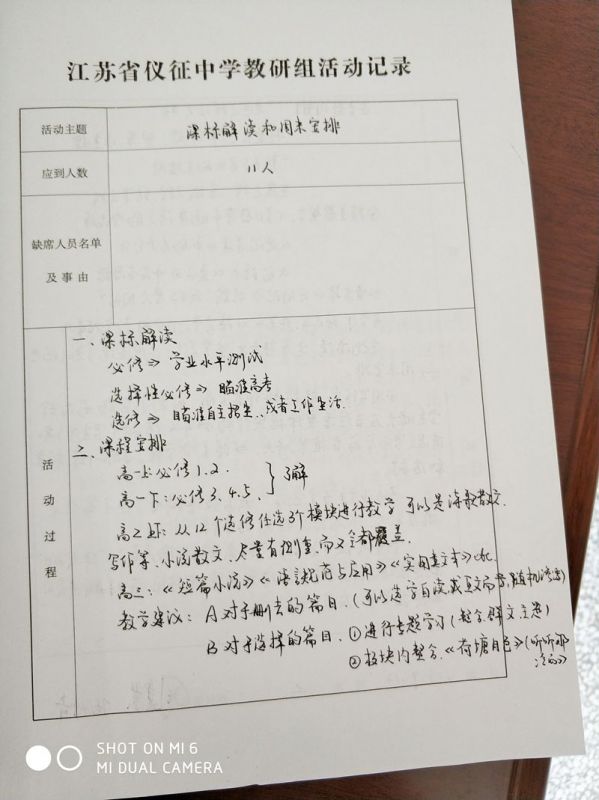 江苏省仪征中学教研组活动记录
活动主题
课标解读和周末安排
应到人数
11人
缺席人员名单
及事由
活动过程
一、课标解读
必修⇒学业水平测试
选择性必修⇒瞄准高考
选修⇒瞄准自主招生、或者工作生活.
二、课程安排
高一上:必修1.2.
高一下:必修3.4.5.
}了解
高二上下:从12个选修任选3个模块进行教学 可以是诗歌散文.
写作等.小说散文.尽量有侧重.而又全都覆盖.
高三:《短篇小说》《语言规范与应用》《实用类文本》etc.
教学建议:A对于删去的篇目.(可以让学自读或
B对于选择的篇目.①进行专题学习(整合.群文.主题)
②板块内整合.《荷塘月色》(听听那冷雨》
SHOT ON MI 6
MI DUAL CAMERA